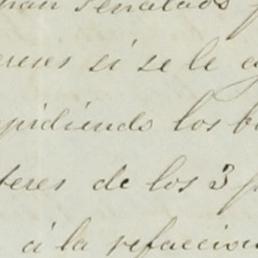 señalados
si se le
pidiendo los
teres de los 3 p
á la refaccion